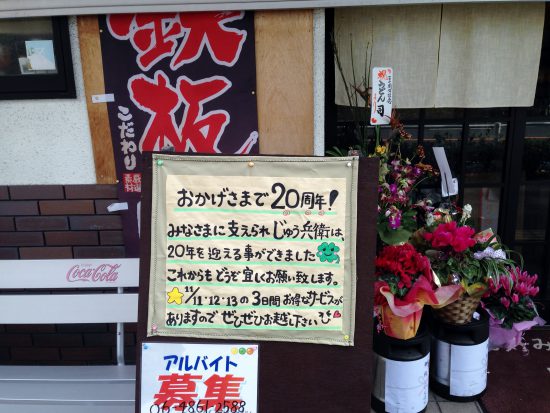 鉄板
こだわり
おかげさまで20周年！
みなさまに支えられ じゅう兵衛は、
20年を迎える事ができました
これからもどうぞ宜しくお願い致します。
11/11・12・13の3日間お得なサービスが
ありますので ぜひぜひお越し下さい
Coca-Cola
アルバイト
募集
06-4861-2588
祝